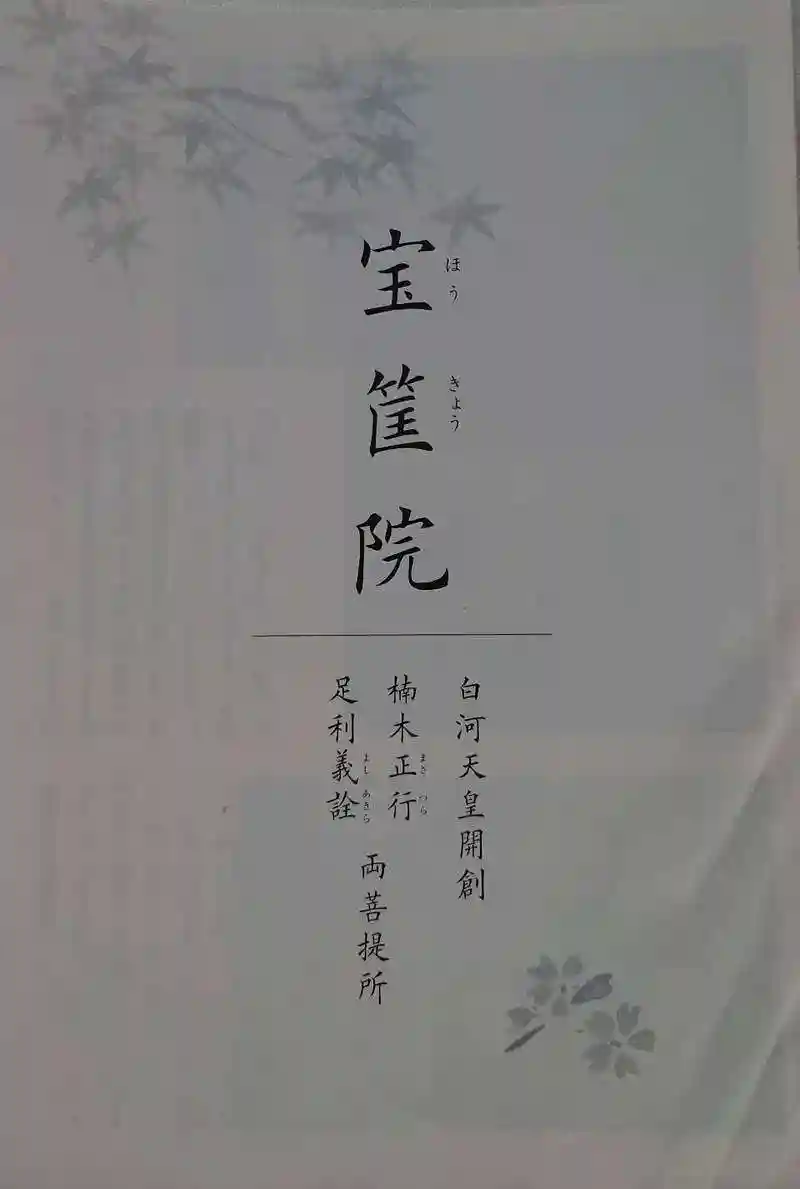 宝筐院
ほうきょう
白河天皇開創
楠木正行
まさつら
足利義詮
よしあきら
両菩提所